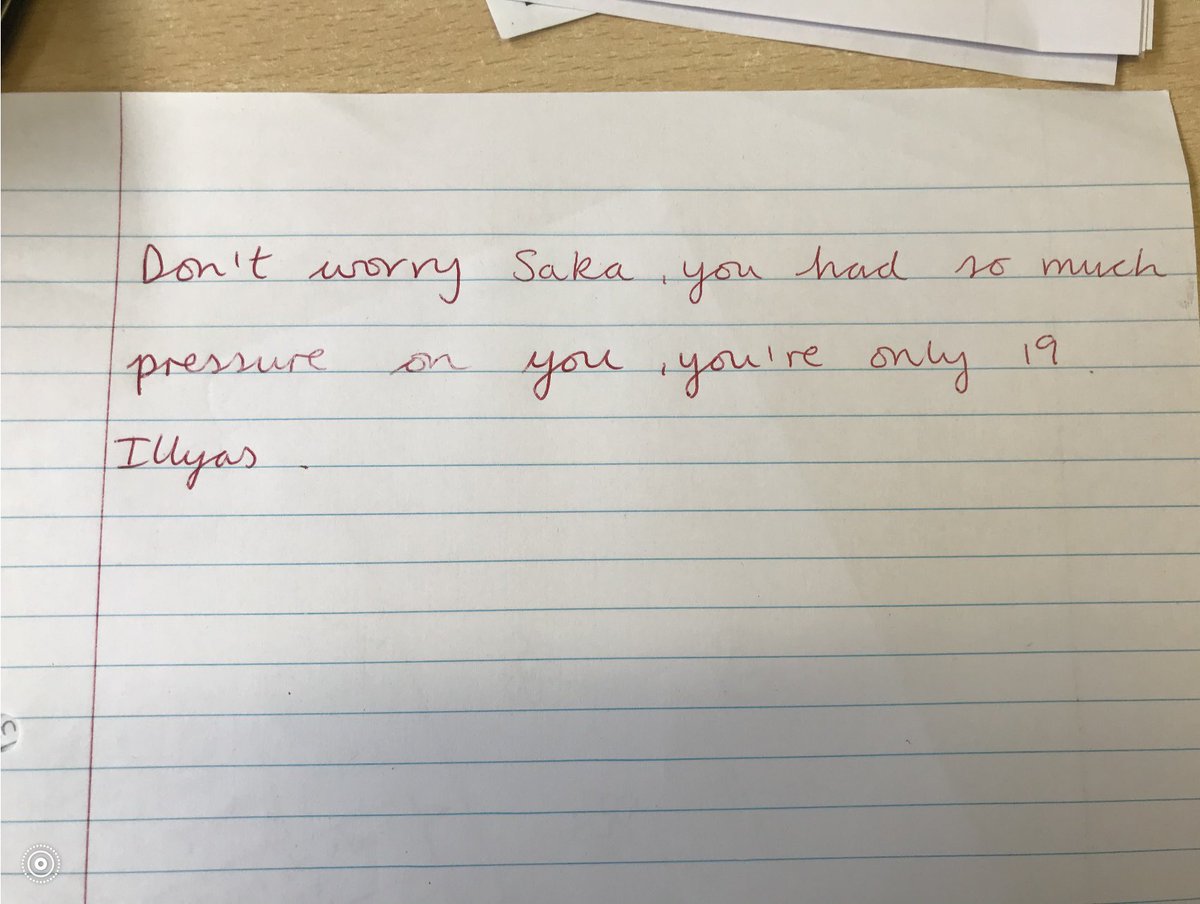 Don't worry Saka, you had so much
pressure on you, you're only 19.
Illyas.